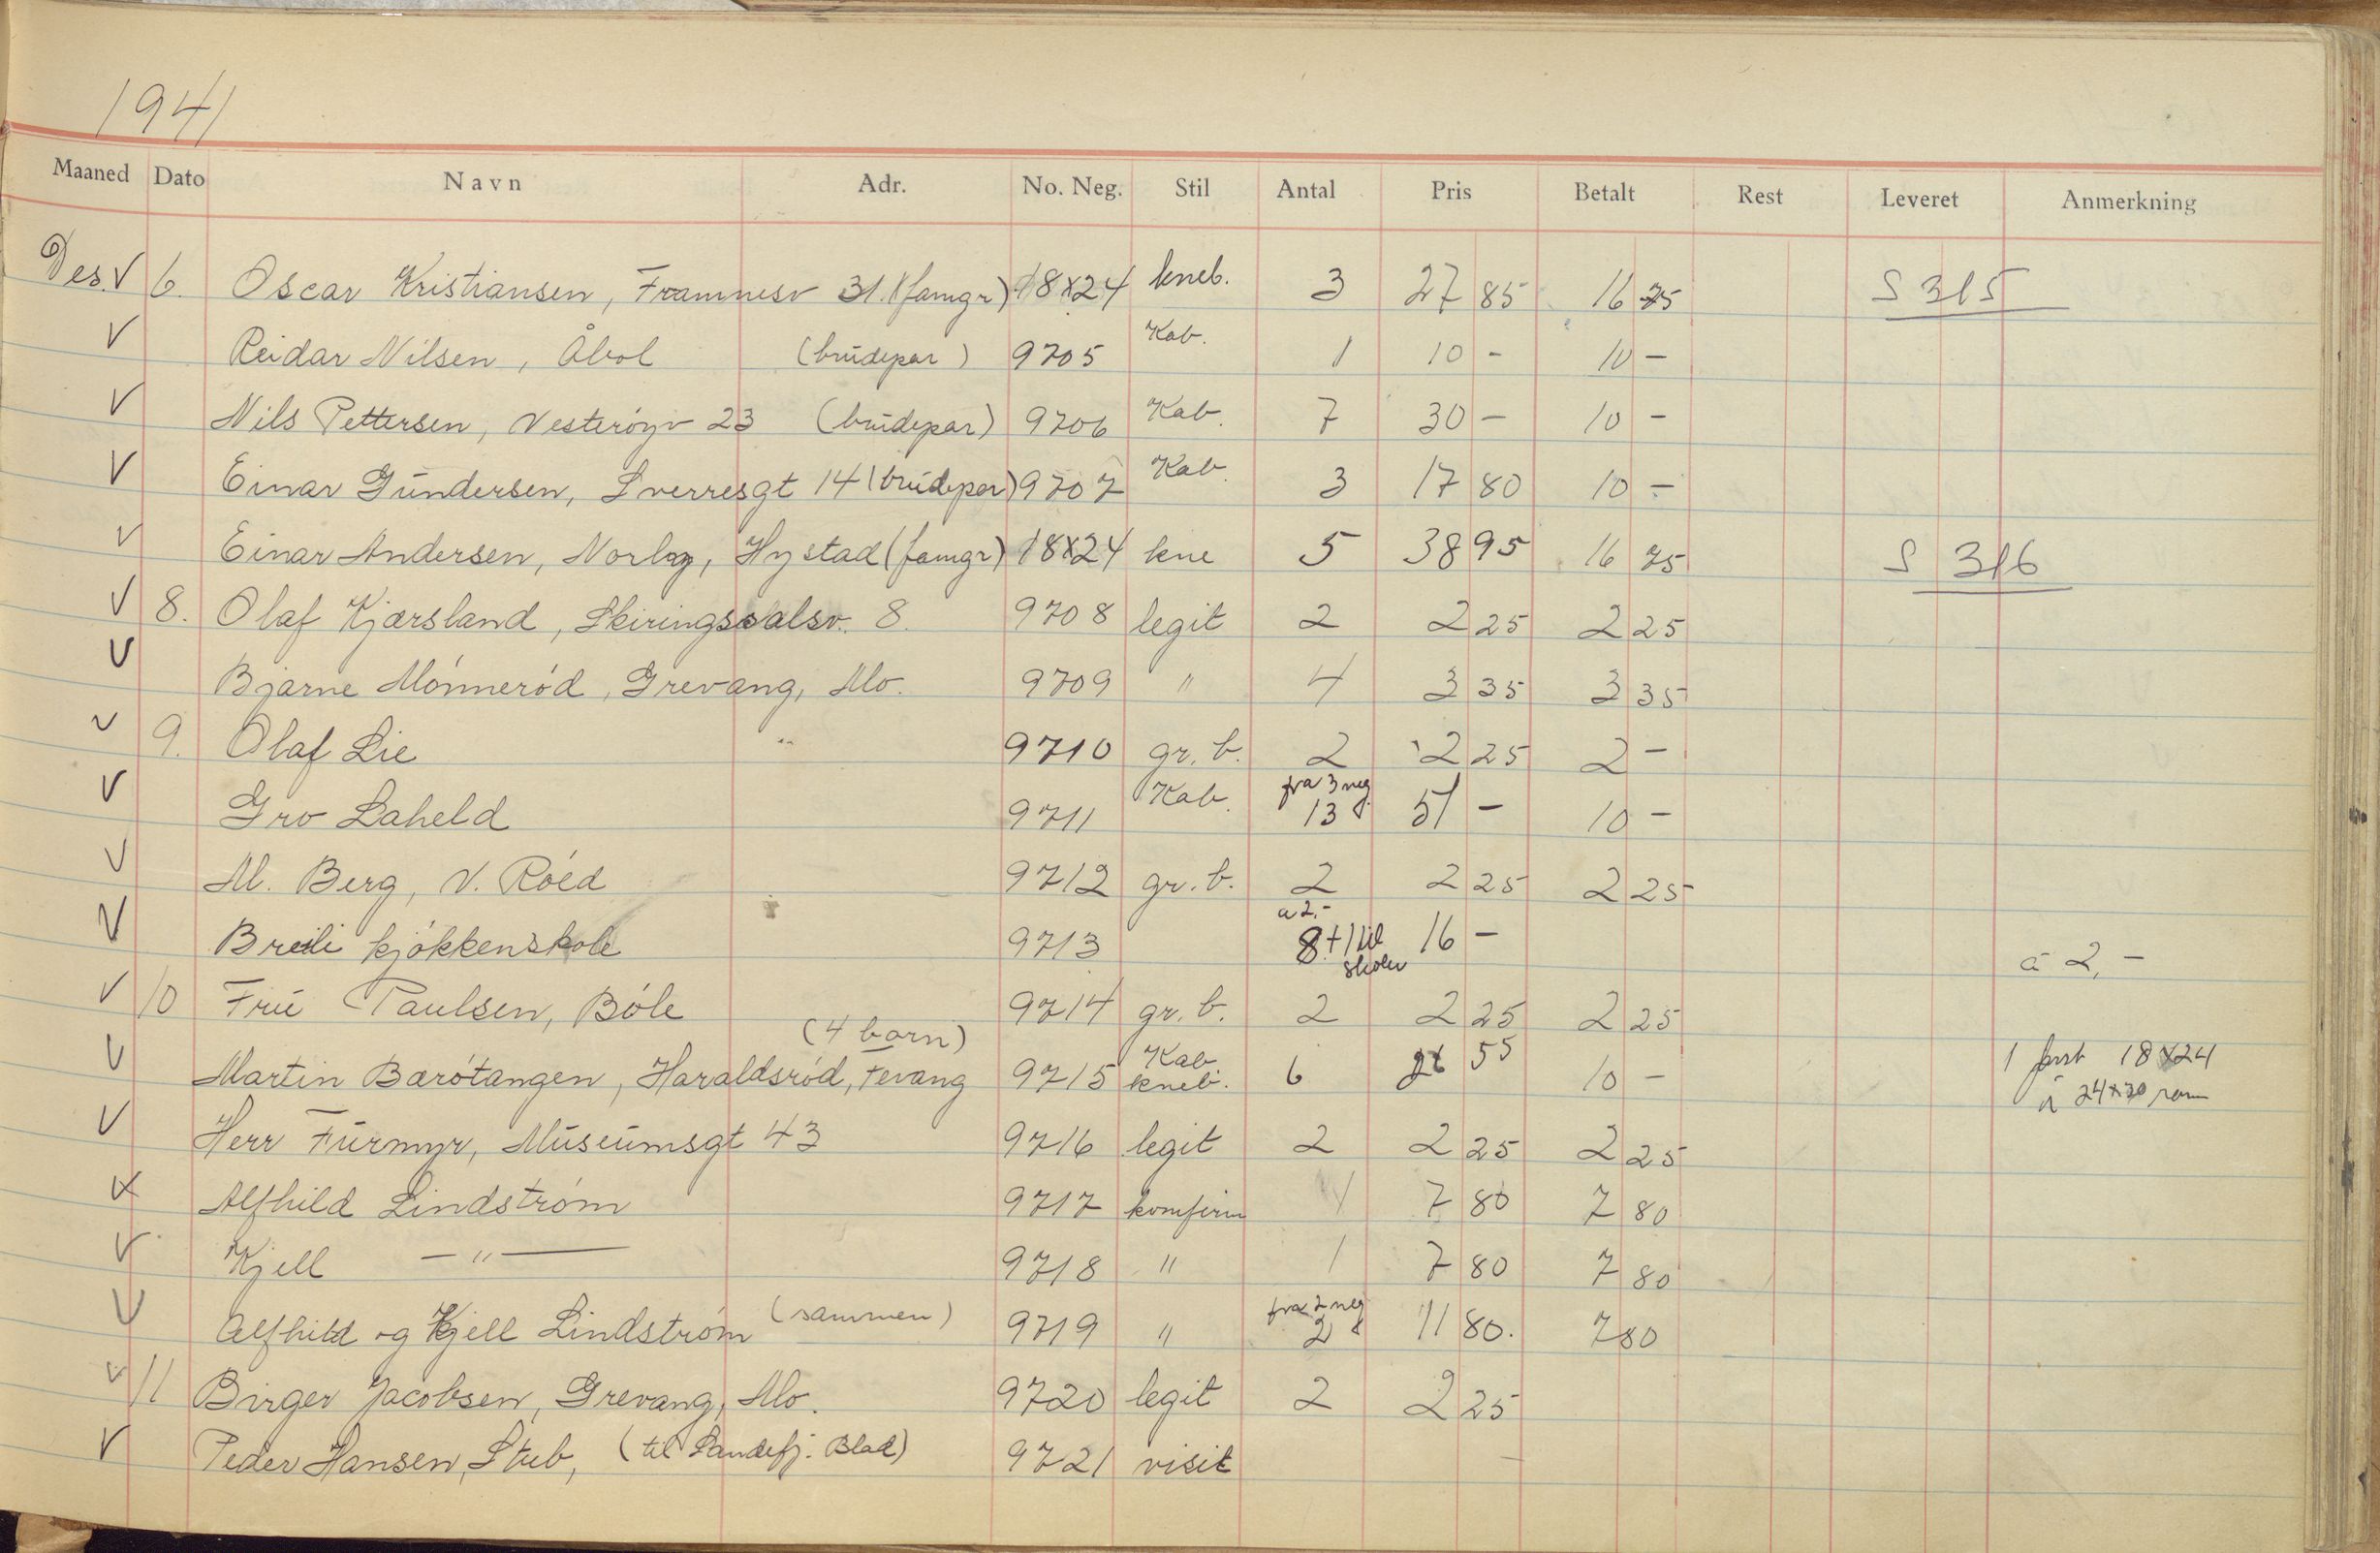 1941
Maaned Dato Navn Adr. No. Neg. Stil Antal Pris Betalt Rest Leveret Anmerkning
Des. V 6. Oscar Kristiansen, Framnesv 31. (famgr) 18x24 kneb. 3 27 85 16 75 S 315
V Reidar Nilsen, Åbol (brudepar) 9705 Kab. 1 10 - 10 -
V Nils Pettersen, Vesterøyv 23 (brudepar) 9706 Kab. 7 30 - 10 -
V Einar Gundersen, Sverresgt 14 (brudepar) 9707 Kab. 3 17 80 10 -
V Einar Andersen, Norby, Hystad (famgr) 18x24 kne 5 38 95 16 75 S 316
V 8. Olaf Kjærsland, Skiringssalsv. 8. 9708 legit 2 2 25 2 25
V Bjarne Mónneród, Grevang, Mo. 9709 " 4 3 35 3 35
V 9. Olaf Lie " 9710 gr. b. 2 2 25 2 -
V Gro Laheld 9711 Kab. fra 3 neg. 13 51 - 10 -
V M. Berg, V. Róed 9712 gr. b. 2 2 25 2 25
V Breili kjókkenskole 9713 a 2,- 8 + 1 til skolen 16 - á 2,-
V 10 Fru Paulsen, Bóle 9714 gr. b. 2 2 25 2 25
(4 barn)
V Martin Barótangen, Haraldsród, Tevang 9715 Kab kneb. 6 26 55 10 - 1 forst 18x24
á 24x30 ram
V Herr Furmyr, Museumsgt 43 9716 legit 2 2 25 2 25
V Alfhild Lindström 9717 komfirm 1 7 80 7 80
V Kjell — " — 9718 " 1 7 80 7 80
V Alfhild og Kjell Lindström (sammen) 9719 " fra 2 neg 2 11 80. 7 80
V 11 Birger Jacobsen, Grevang, Mo. 9720 legit 2 2 25
V Peder Hansen, Stub, (til Sandefj. Blad) 9721 visit